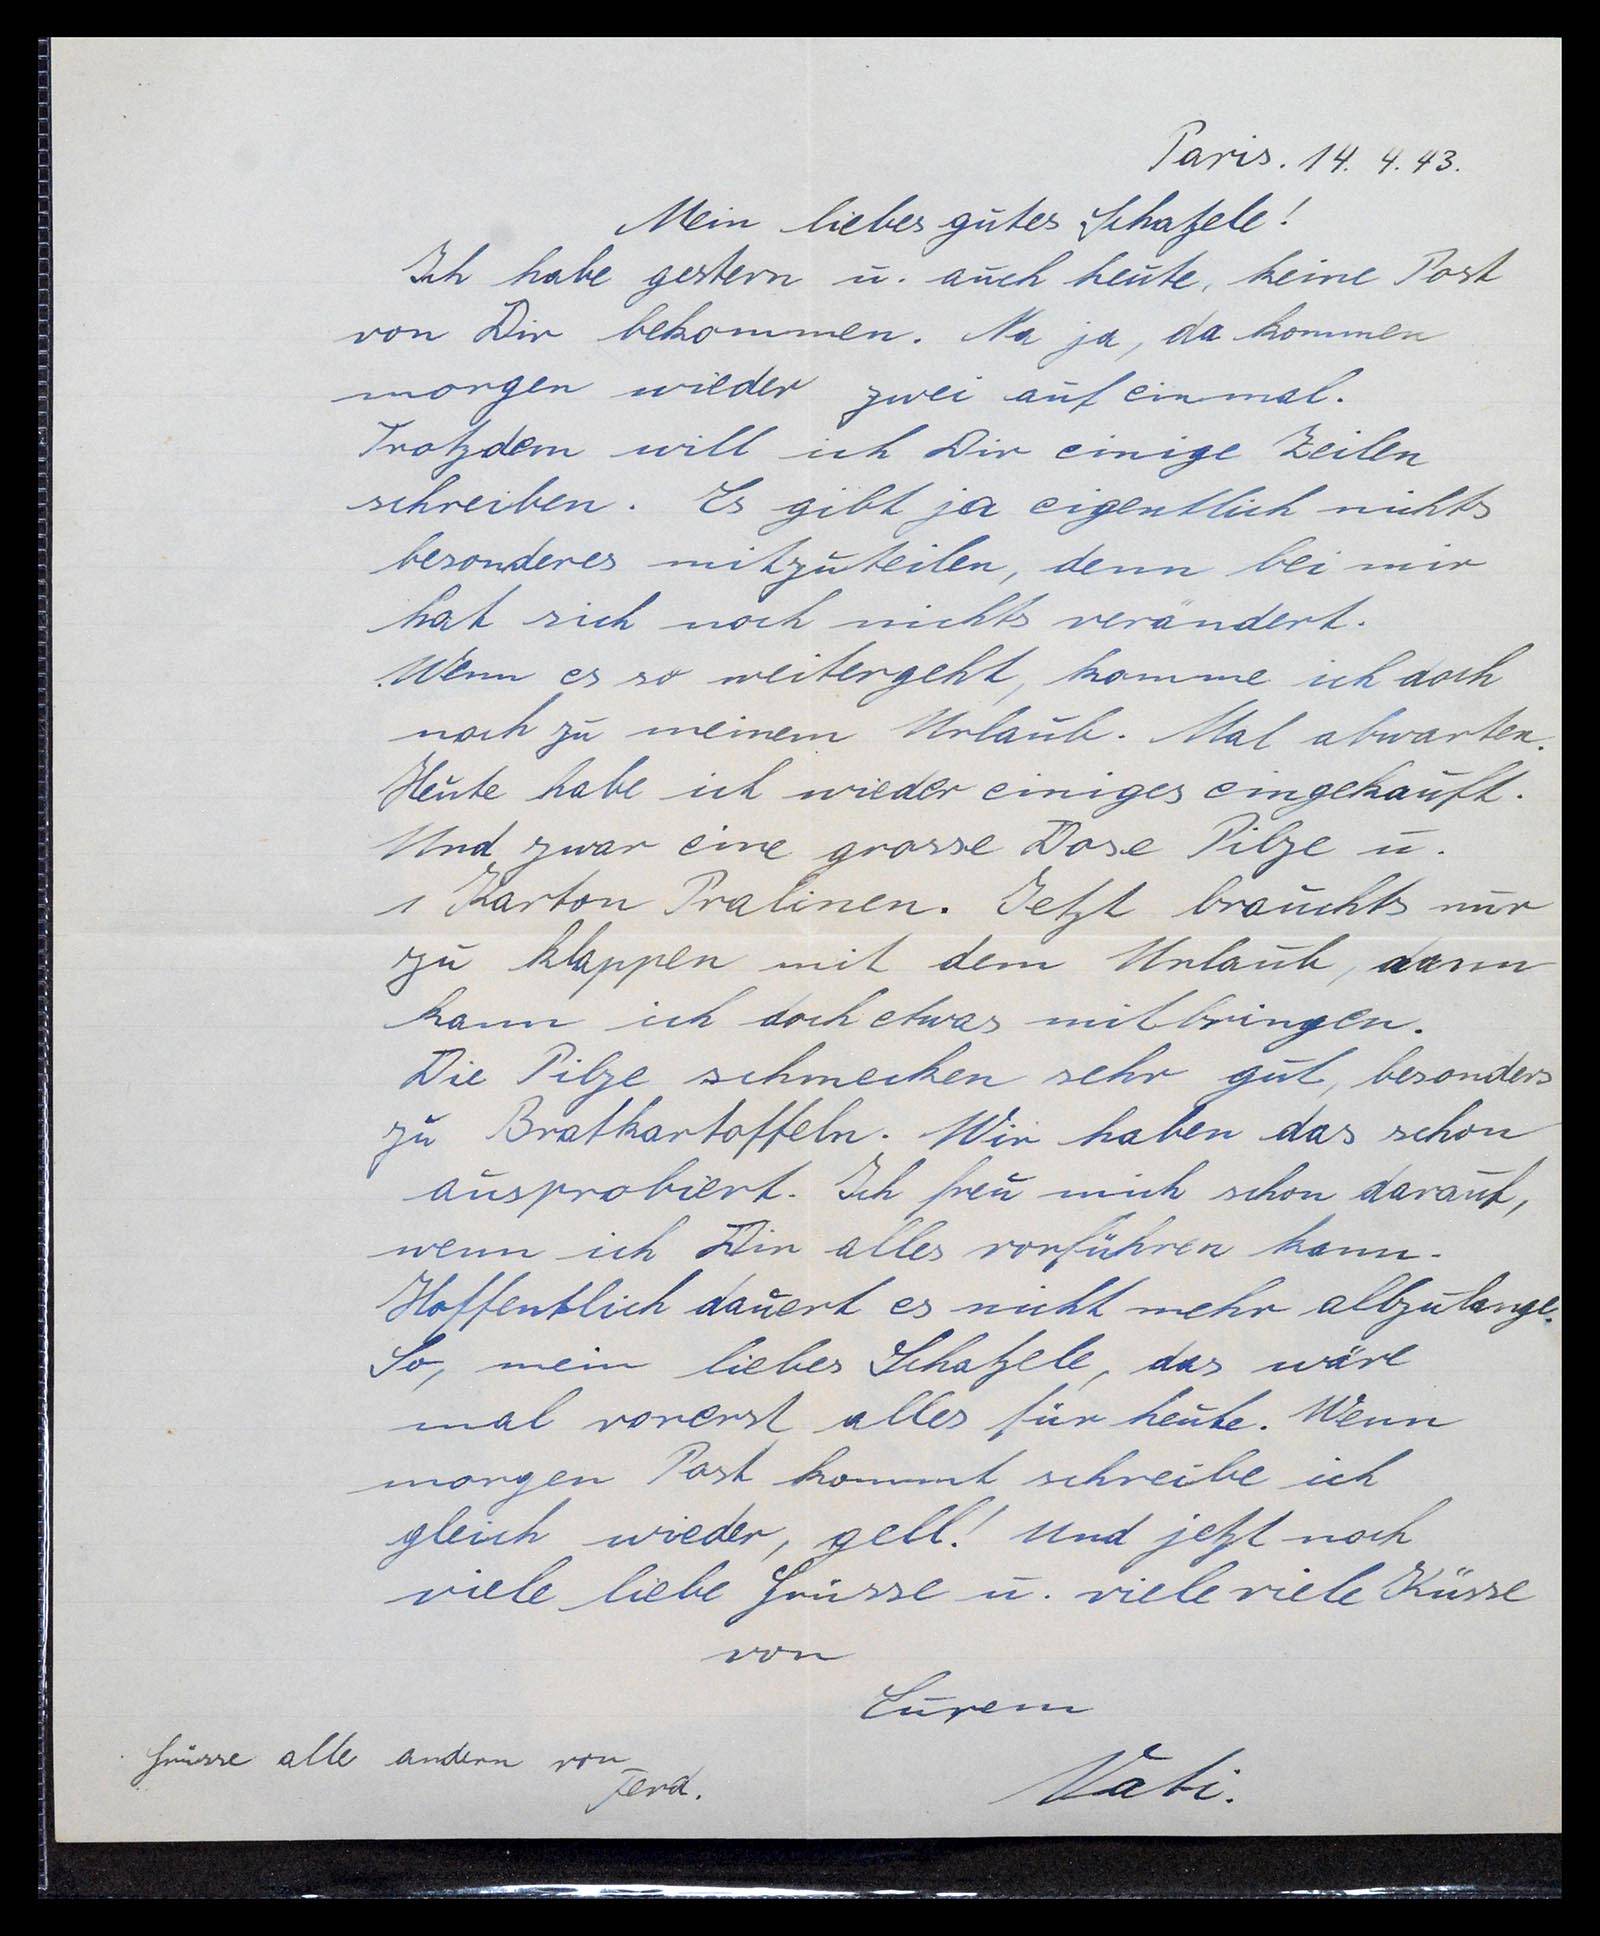 Paris. 14. 4. 43.
Mein liebes gutes Schatzele!
Ich habe gestern u. auch heute, keine Post
von Dir bekommen. Na ja, da kommen
morgen wieder zwei auf einmal.
Trotzdem will ich Dir einige Zeilen
schreiben. Es gibt ja eigentlich nichts
besonderes mitzuteilen, denn bei mir
hat sich noch nichts verändert.
Wenn es so weitergeht, komme ich doch
noch zu meinem Urlaub. Mal abwarten.
Heute habe ich wieder einiges eingekauft.
Und zwar eine grosse Dose Pilze u.
1 Karton Pralinen. Jetzt brauchts nur
zu klappen mit dem Urlaub, dann
kann ich doch etwas mitbringen.
Die Pilze schmecken sehr gut, besonders
zu Bratkartoffeln. Wir haben das schon
ausprobiert. Ich freu mich schon darauf,
wenn ich Dir alles vorführen kann.
Hoffentlich dauert es nicht mehr allzulange.
So, mein liebes Schatzele, das wäre
mal vorerst alles für heute. Wenn
morgen Post kommt schreibe ich
gleich wieder, gell! Und jetzt noch
viele liebe Grüsse u. viele viele Küsse
von
Eurem
Vati.
Grüsse alle andern von
Ferd.